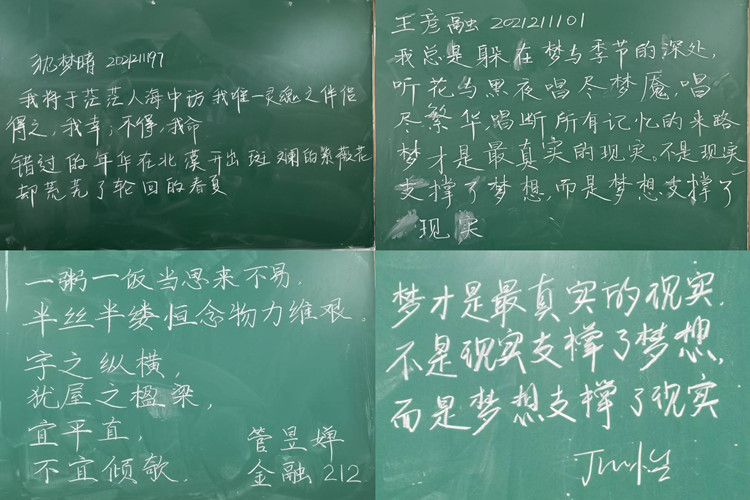 梦晴 202121197
我将于茫茫人海中访我唯一灵魂之伴侣
得之,我幸;不得,我命
错过的年华在北漠开出斑斓的紫薇花
却荒芜了轮回的春夏
王彦融 2021211101
我总是躲在梦与季节的深处,
听花与黑夜唱尽梦魇,唱
尽繁华,唱断所有记忆的来路
梦才是最真实的现实。不是现实
支撑了梦想,而是梦想支撑了
现实
一粥一饭当思来不易,
半丝半缕恒念物力维艰。
字之纵横,
犹屋之楹梁,
宜平直,
不宜倾欹.
管昱婵
金融212
梦才是最真实的现实.
不是现实支撑了梦想,
而是梦想支撑了现实